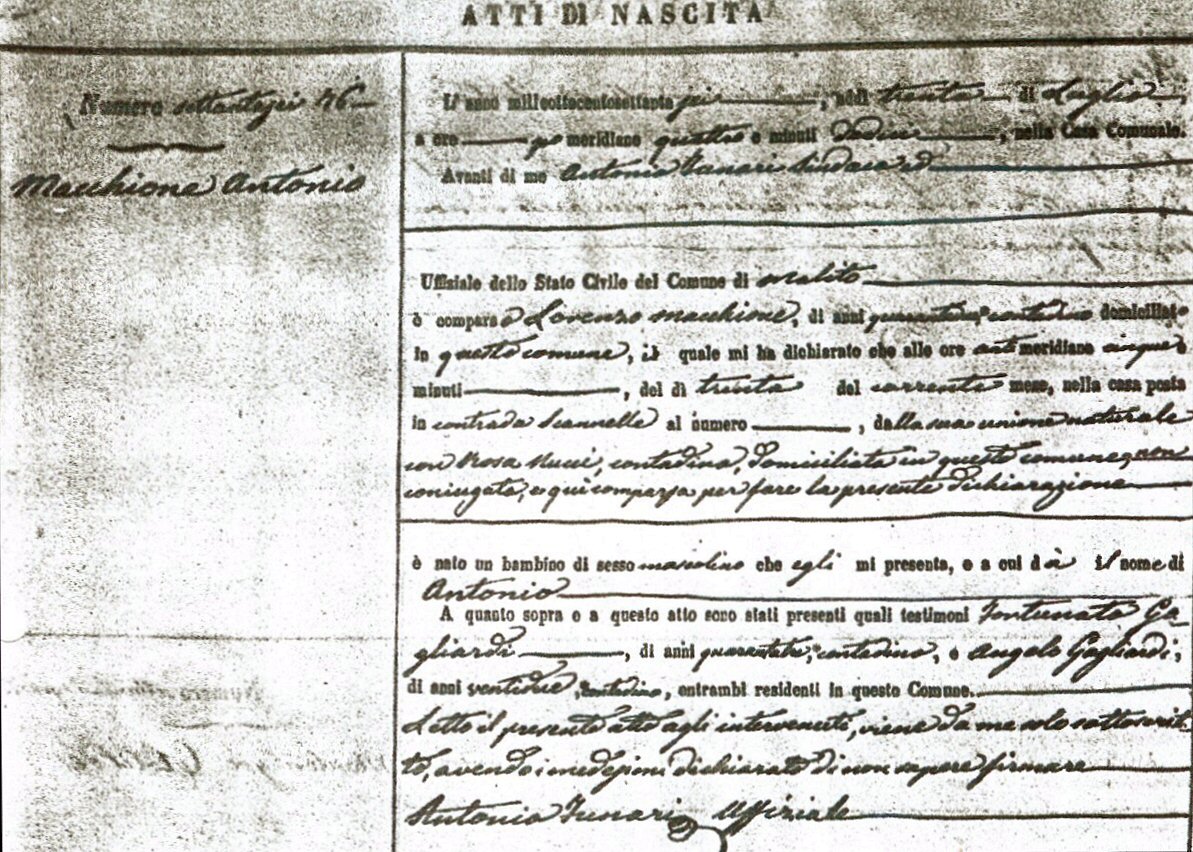 ATTI DI NASCITA
Numero settantasei 76
Macchione Antonio
L'anno milleottocentosettanta , addì trenta di Luglio ,
a ore po meridiane quattro e minuti , nella Casa Comunale.
Avanti di me Antonio Funari Sindaco ed
Uffiziale dello Stato Civile del Comune di Malito
è comparso Lorenzo Macchione, di anni contadino domiciliato
in questo comune, il quale mi ha dichiarato che alle ore anti meridiane cinque e
minuti , del dì trenta del corrente mese, nella casa posta
in contrada al numero , dalla sua unione naturale
con Rosa Nucci, contadina, domiciliata in questo comune, non
coniugata, e qui comparsa per fare la presente dichiarazione
è nato un bambino di sesso mascolino che egli mi presenta, e a cui dà il nome di
Antonio
A quanto sopra e a questo atto sono stati presenti quali testimoni Fortunato Ga-
gliardi , di anni quarantatre, contadino, e Angelo Gagliardi,
di anni ventidue, contadino, entrambi residenti in questo Comune.
Letto il presente atto agli intervenuti, viene da me solo sottoscrit-
to, avendo i medesimi dichiarato di non sapere firmare
Antonio Funari Uffiziale